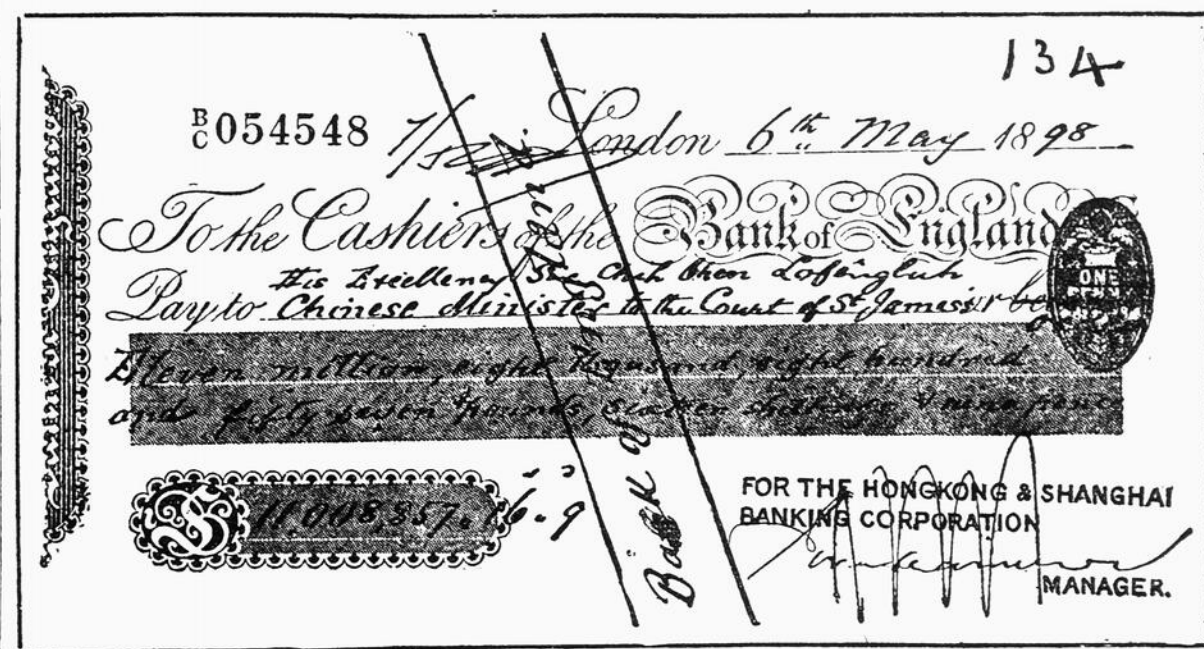 134
B/C 054548 London 6th May 1898
To the Cashiers of the Bank of England
His Excellency Sir Chih Chen Lofengluh
Pay to Chinese Minister to the Court of St James's or
Eleven million, eight thousand, eight hundred
and fifty seven pounds, sixteen shillings & nine pence
£ 11,008,857.16.9
Bank of England
ONE
PENNY
FOR THE HONGKONG & SHANGHAI
BANKING CORPORATION
MANAGER.